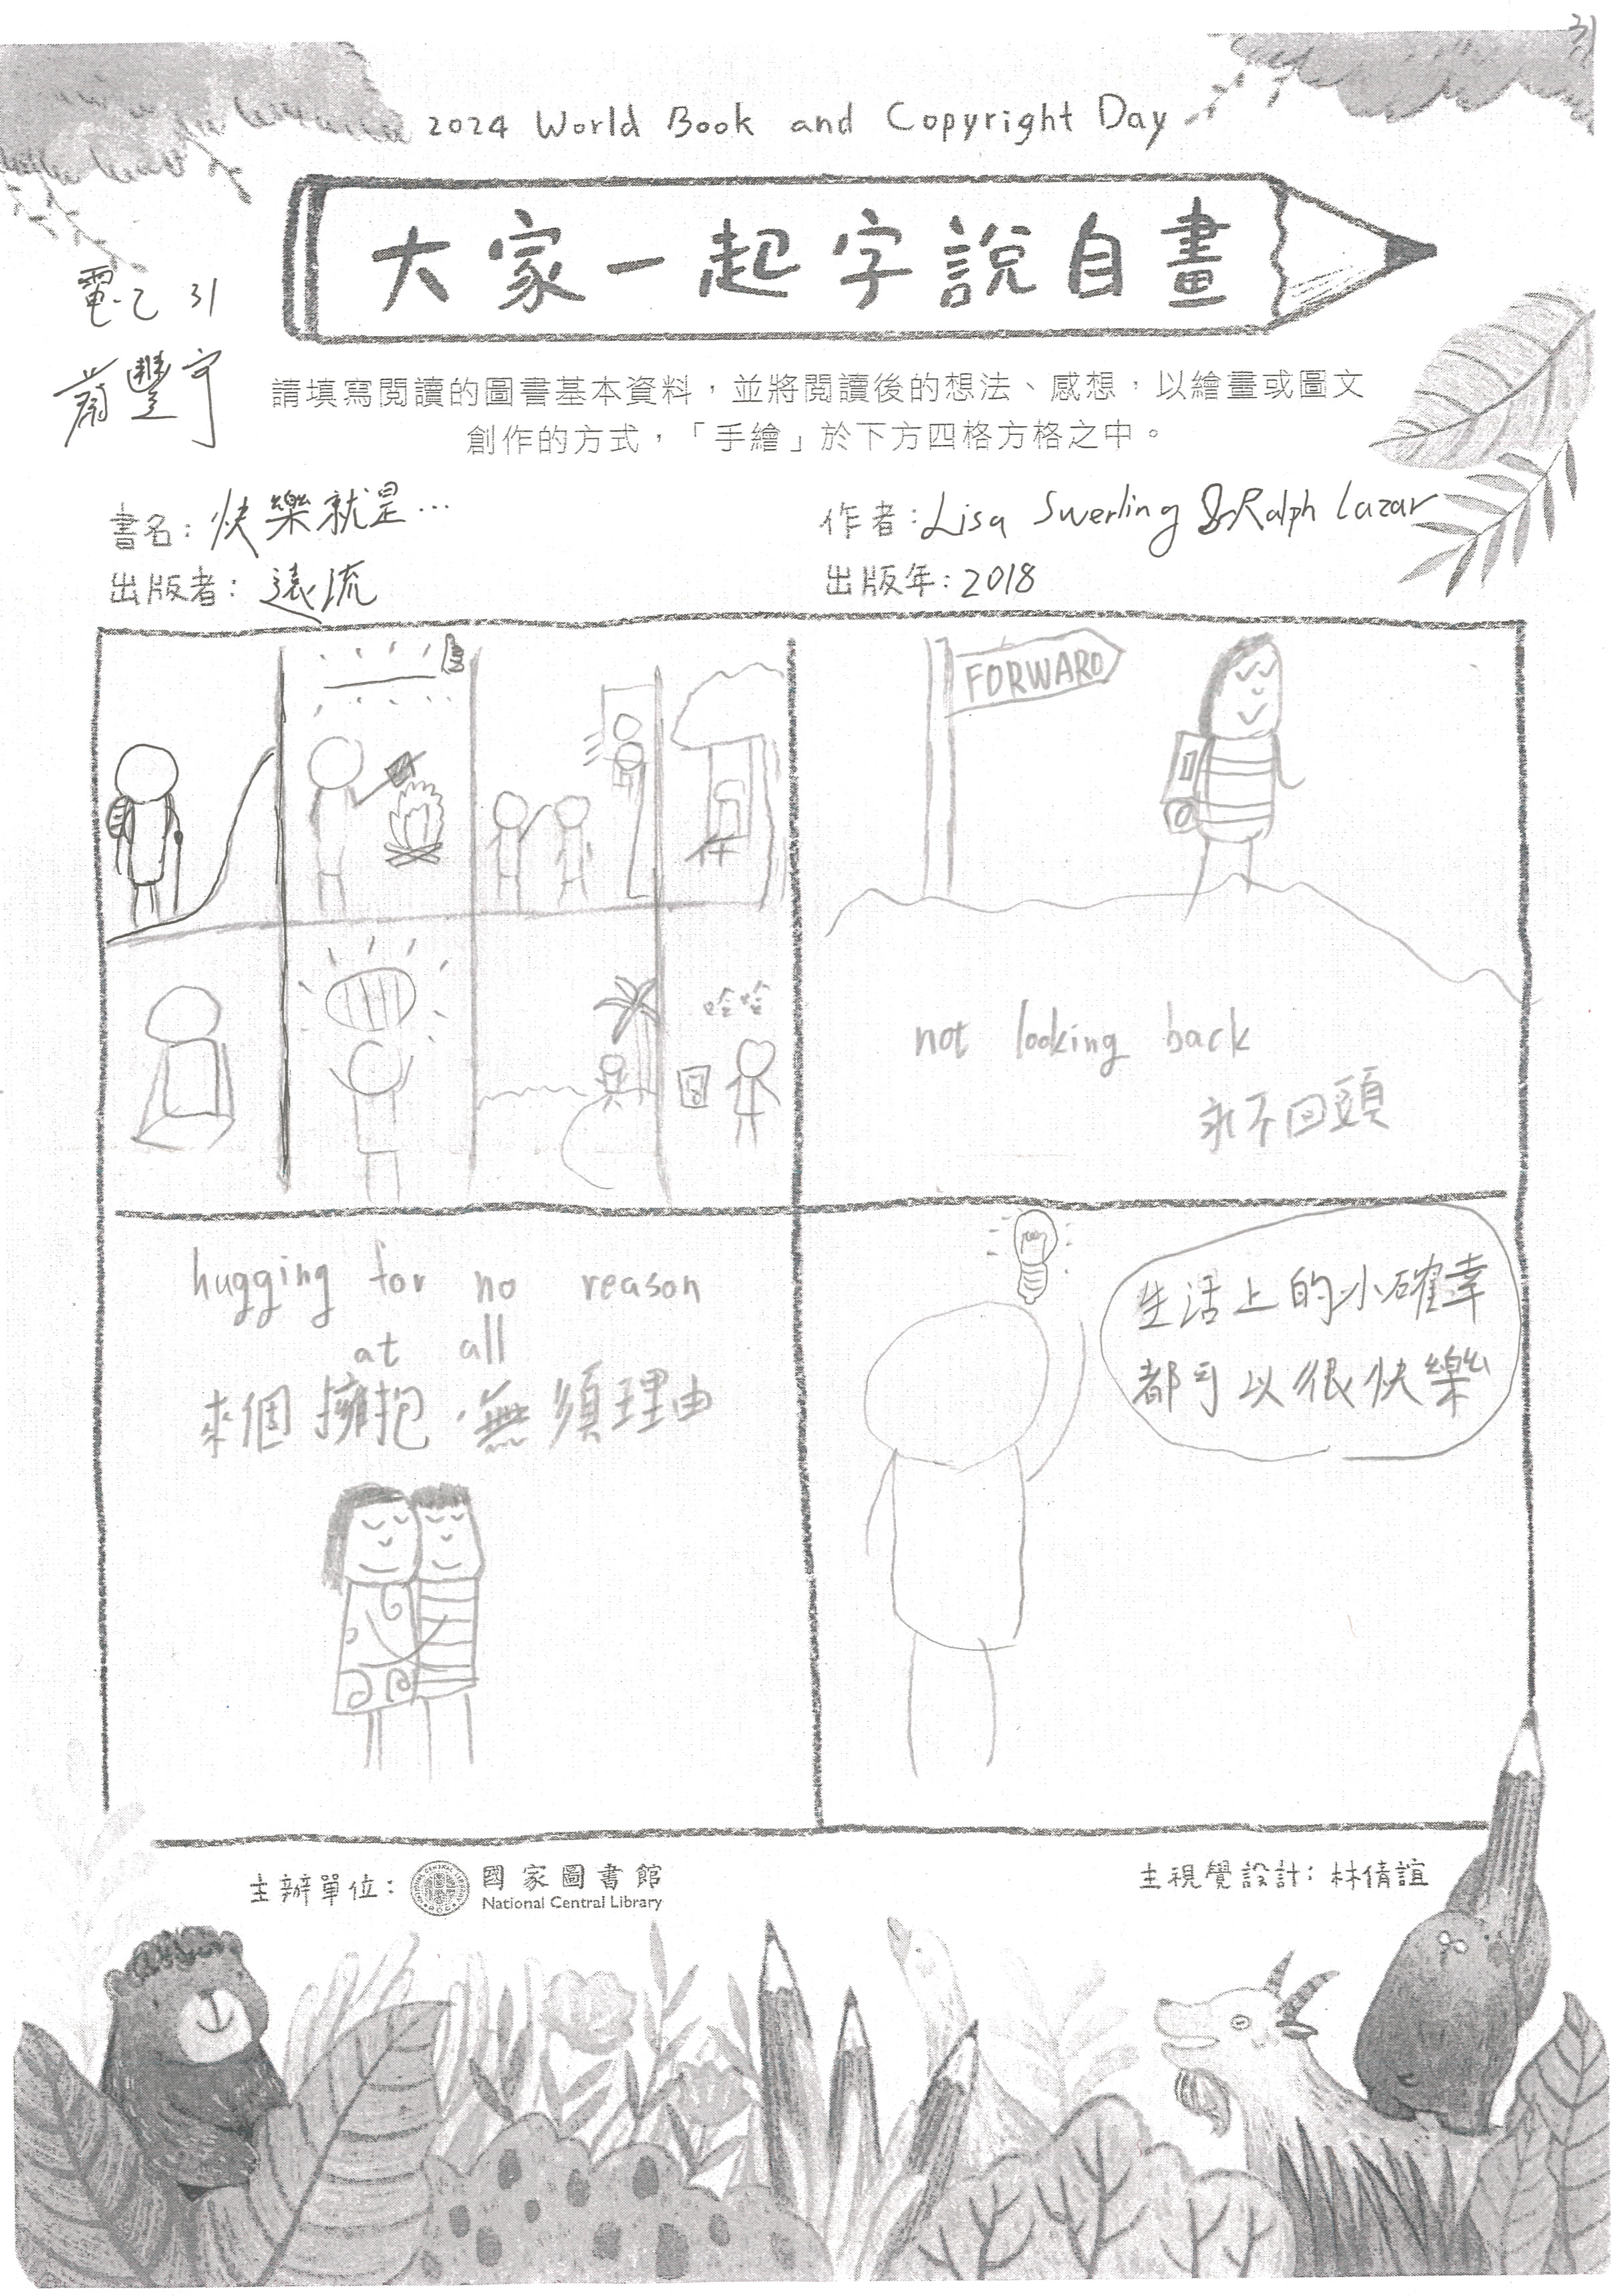 31
2024 World Book and Copyright Day
大家一起字說自畫
電乙 31
請填寫閱讀的圖書基本資料，並將閱讀後的想法、感想，以繪畫或圖文
創作的方式，「手繪」於下方四格方格之中。
書名：快樂就是...
作者：Lisa Swerling & Ralph Lazar
出版者：遠流
出版年：2018
FORWARD
哈哈
not looking back
永不回頭
hugging for no reason
at all
來個擁抱 無須理由
生活上的小確幸
都可以很快樂
主辦單位：國家圖書館
National Central Library
主視覺設計：林倩誼